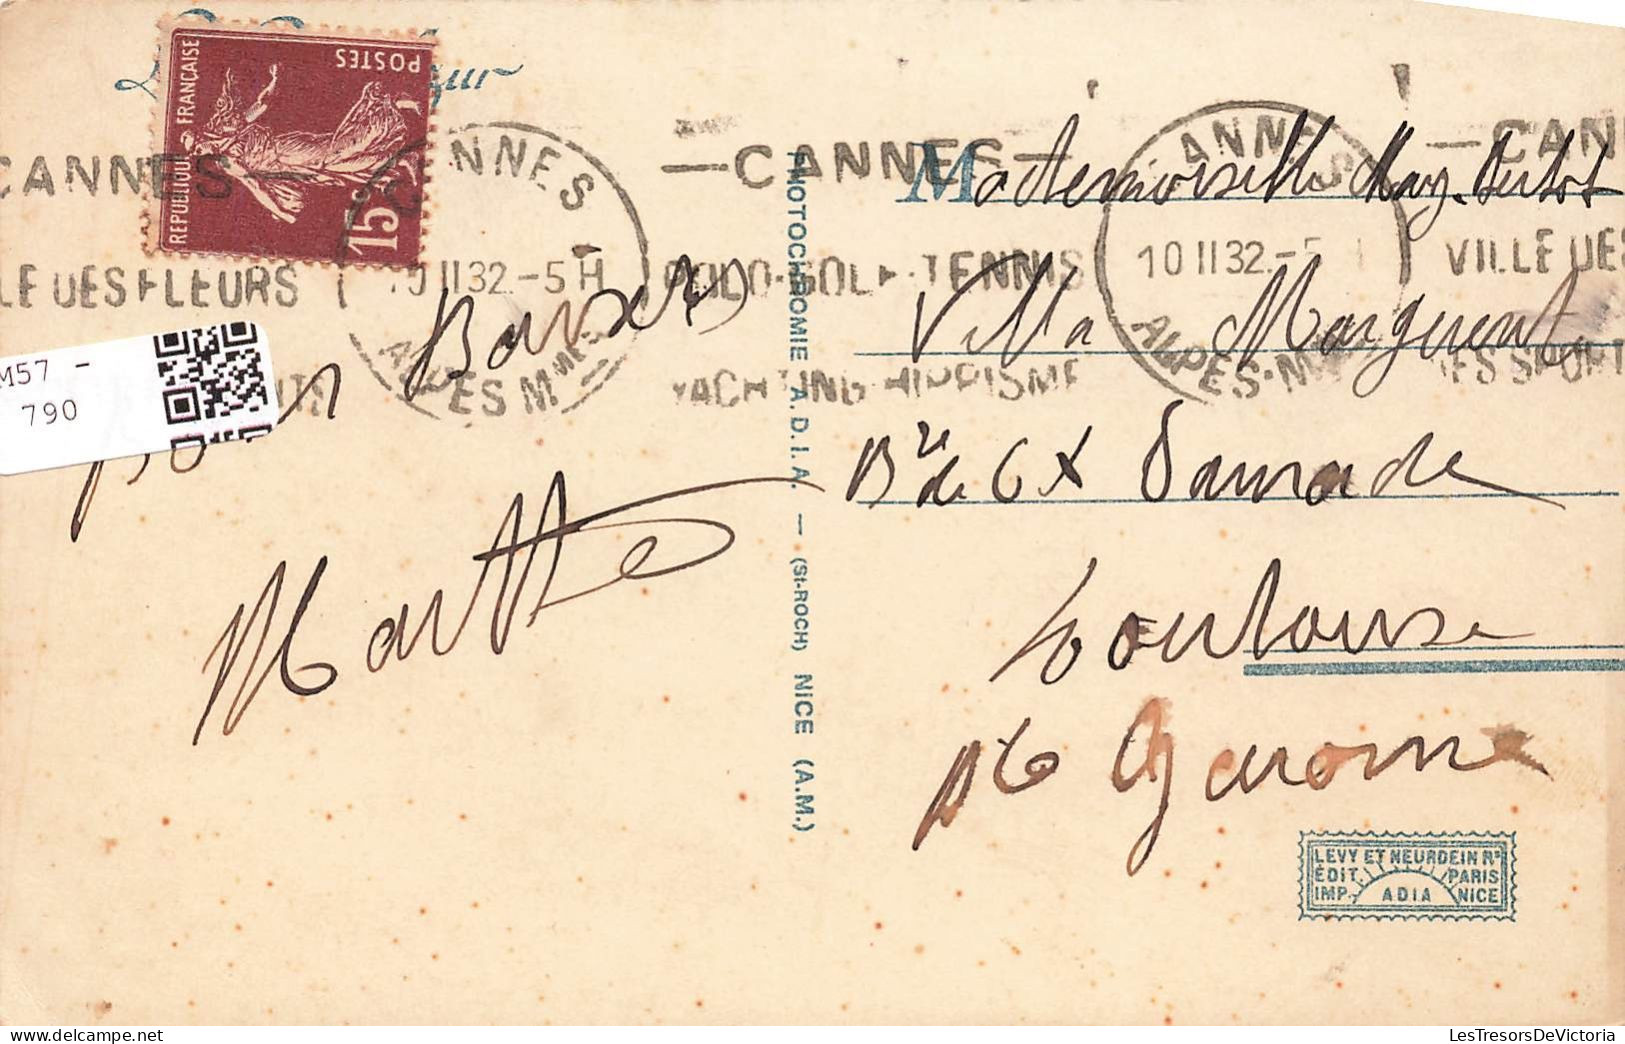 REPUBLIQUE FRANÇAISE
POSTES
15c
CANNES
10 II 32 - 5 H
ALPES Mmes
CANNES
LE DES FLEURS
— CANNES —
POLO-GOLF-TENNIS
YACHTING HIPPISME
ANNES
10 II 32 - 5
ALPES-M
— CAN
VILLE DES
DES SPORT
M57 -
790
Bons Baisers
Marthe
PHOTOCHROMIE A.D.I.A. — (St-ROCH) NICE (A.M.)
Mademoiselle
Villa Marguerite
Bre de Cx Daurade
Toulouse
Hte Garonne
LEVY ET NEURDEIN Rs
EDIT. PARIS
IMP. ADIA NICE
LesTresorsDeVictoria.com